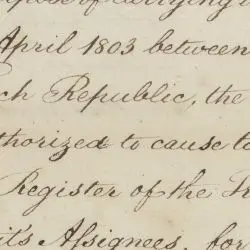 pose of carrying i
April 1803 between
ch Republic, the
thorized to cause to
Register of the
it's Assignees, for